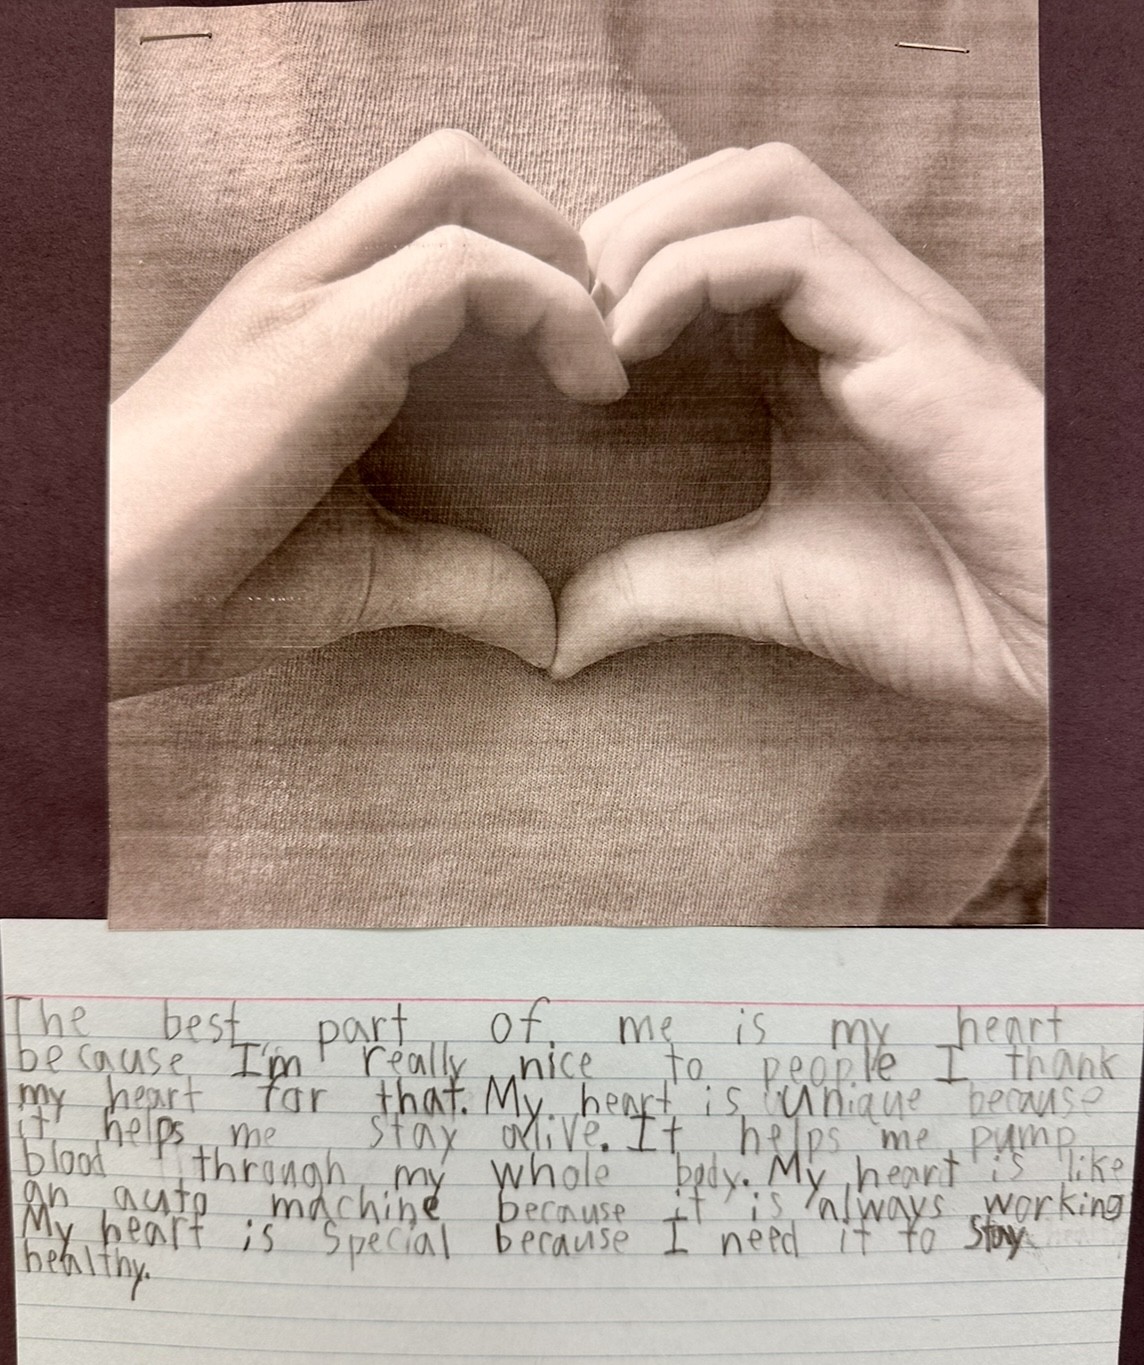 The best part of me is my heart
because I'm really nice to people I thank
my heart for that. My heart is unique because
it helps me stay alive. It helps me pump
blood through my whole body. My heart is like
an auto machine because it is always working
My heart is special because I need it to stay
healthy.